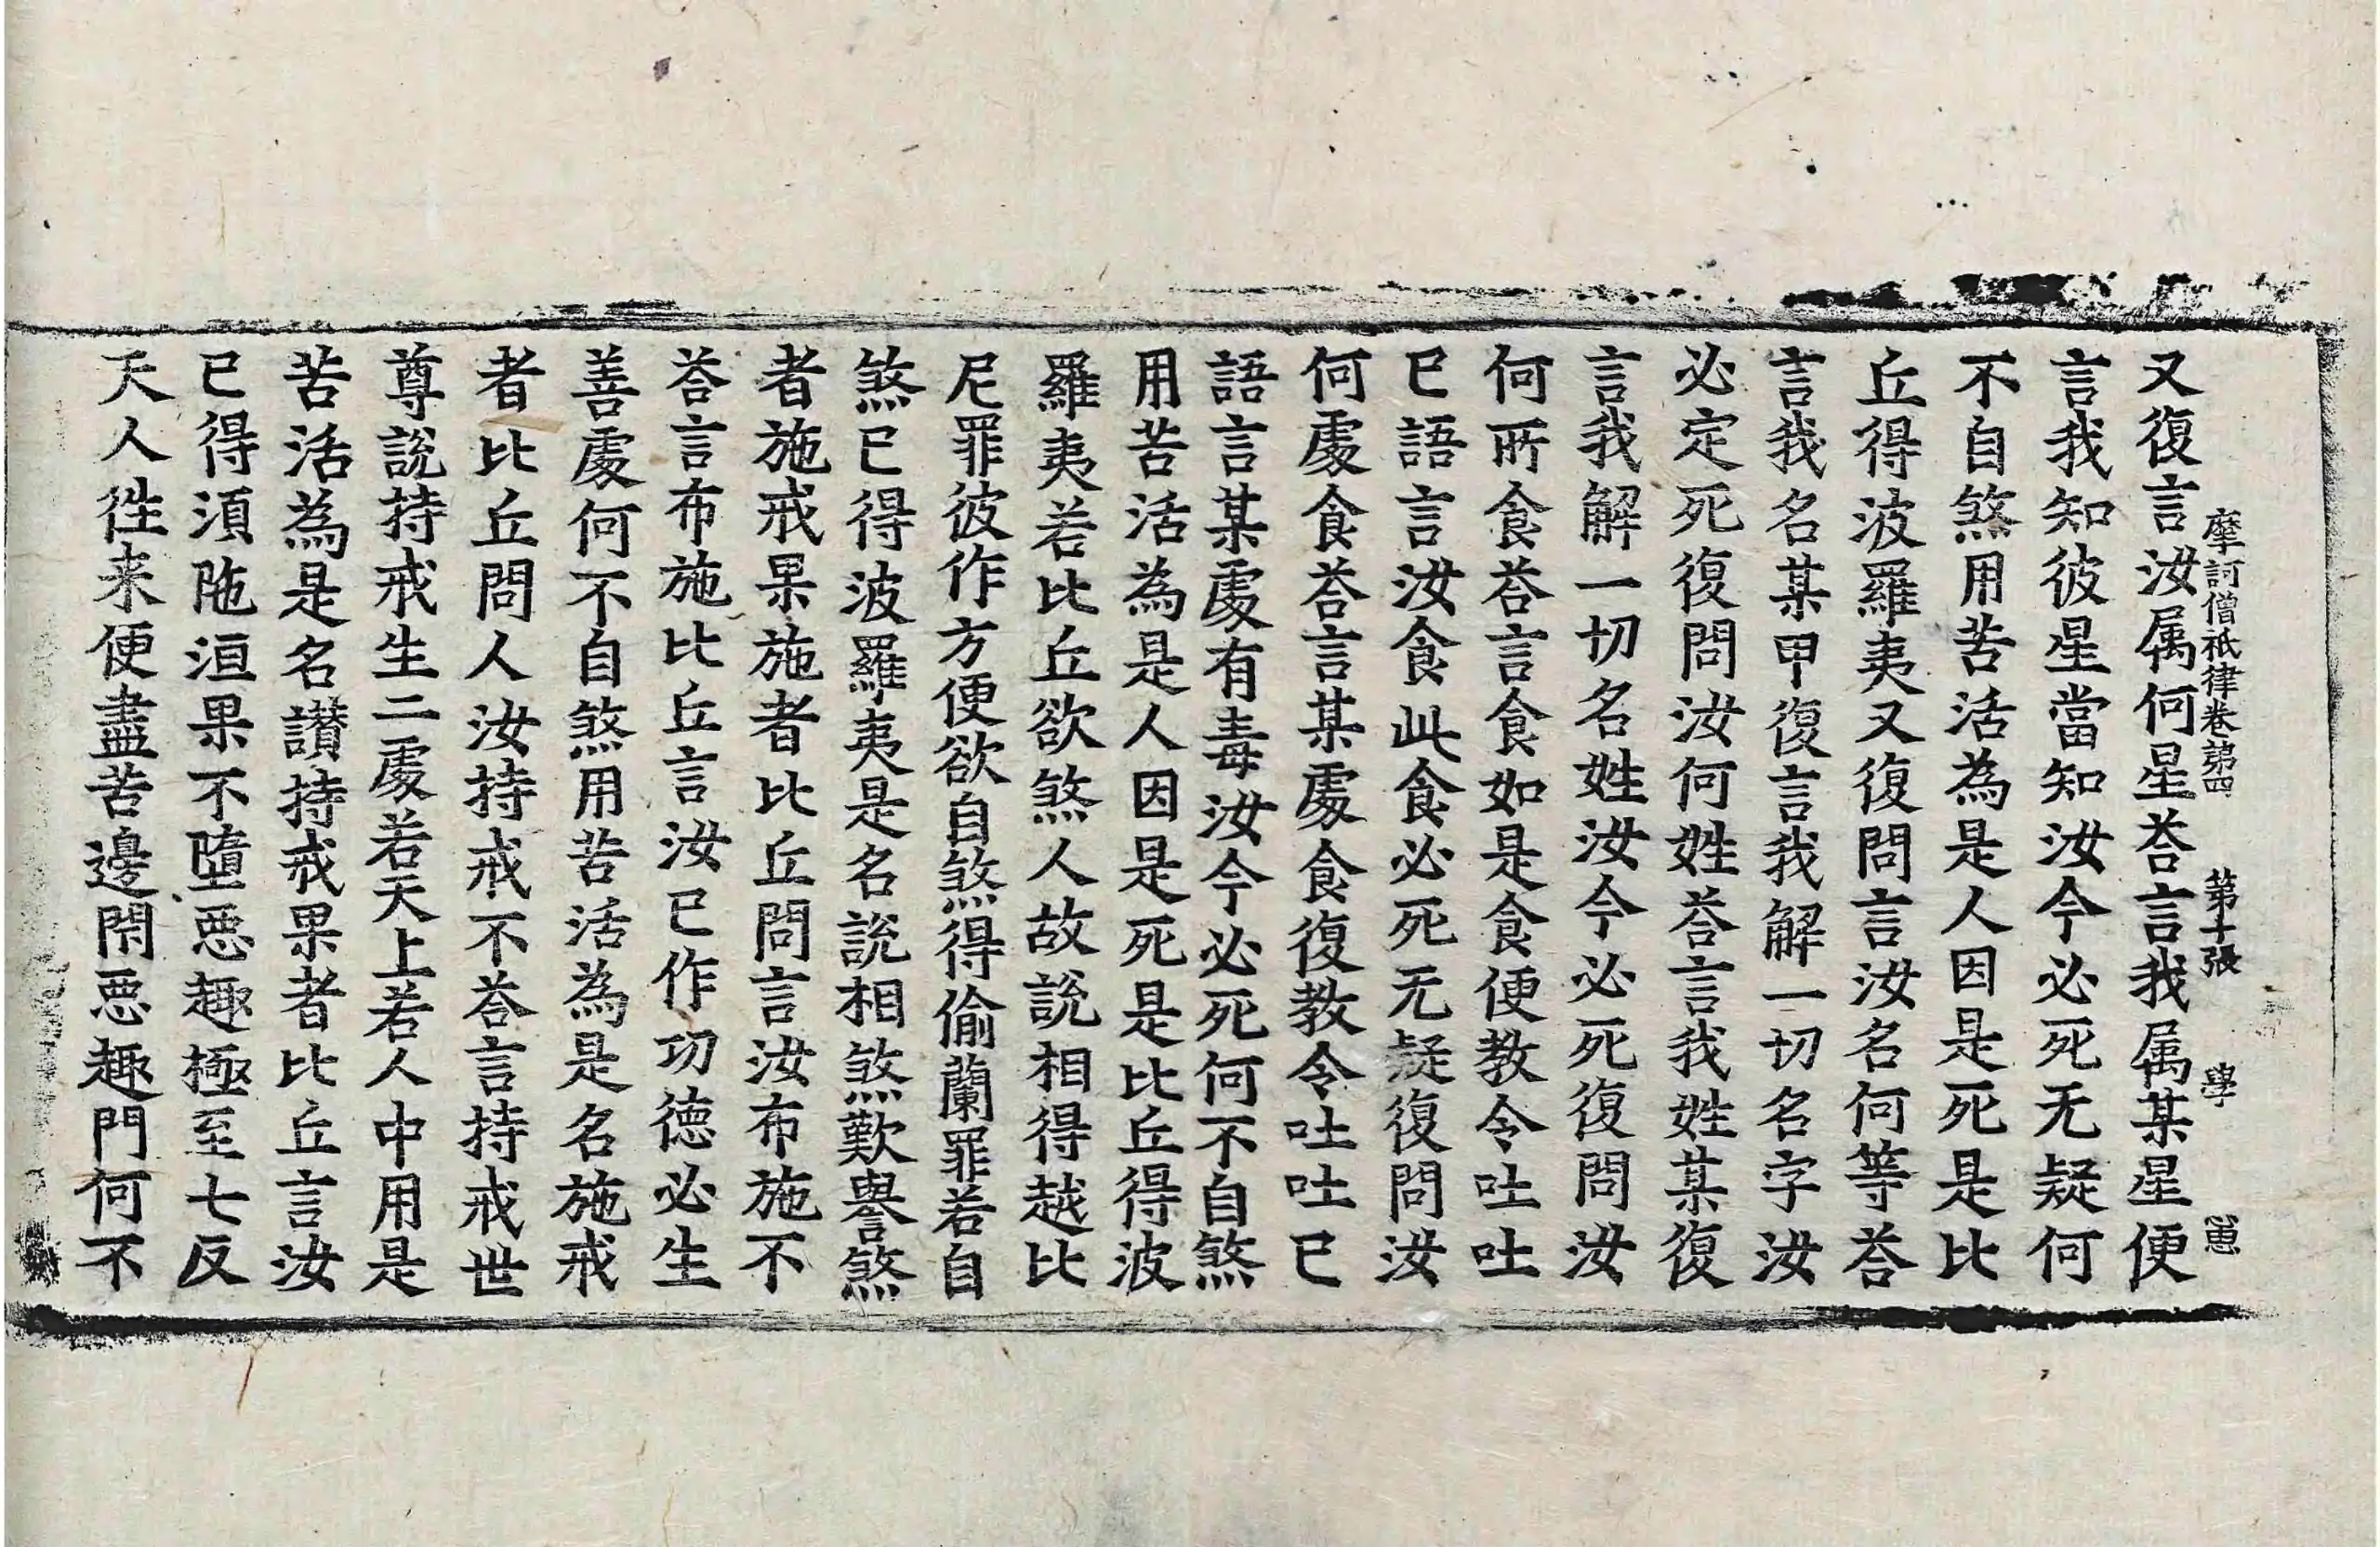 摩訶僧祇律卷第四　第十張　學　
又復言汝属何星荅言我属某星便
言我知彼星當知汝今必死无疑何
不自煞用苦活為是人因是死是比
丘得波羅夷又復問言汝名何等荅
言我名某甲復言我解一切名字汝
必定死復問汝何姓荅言我姓某復
言我解一切名姓汝今必死復問汝
何所食荅言食如是食便教令吐吐
已語言汝食此食必死无疑復問汝
何處食荅言某處食復教令吐吐已
語言某處有毒汝今必死何不自煞
用苦活為是人因是死是比丘得波
羅夷若比丘欲煞人故說相得越比
尼罪彼作方便欲自煞得偷蘭罪若自
煞已得波羅夷是名說相煞歎譽煞
者施戒果施者比丘問言汝布施不
荅言布施比丘言汝已作功德必生
善處何不自煞用苦活為是名施戒
者比丘問人汝持戒不荅言持戒世
尊說持戒生二處若天上若人中用是
苦活為是名讃持戒果者比丘言汝
已得湏陁洹果不墮惡趣極至七反
天人徃来便盡苦邊閇惡趣門何不